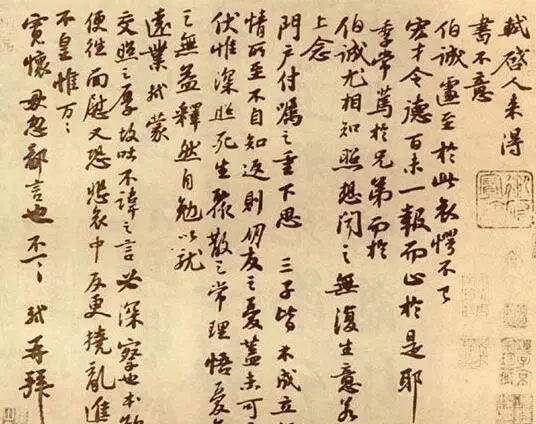 軾啓人来得
書不意
伯誠遽至於此哀愕不已
宏才令德百未一報而止於是耶
季常篤於兄弟而於
伯誠尤相知照想聞之無復生意若
上念
門戶付囑之重下思 三子皆不成立
情所至不自知返則朋友之憂蓋未可
伏惟深照死生聚散之常理悟憂
之無益釋然自勉以就
遠業軾蒙
交照之厚故吐不諱之言必深察也本欲
便往面慰又恐悲哀中反更撓亂進
不皇惟万々
寬懷毋忽鄙言也不一々 軾再拜